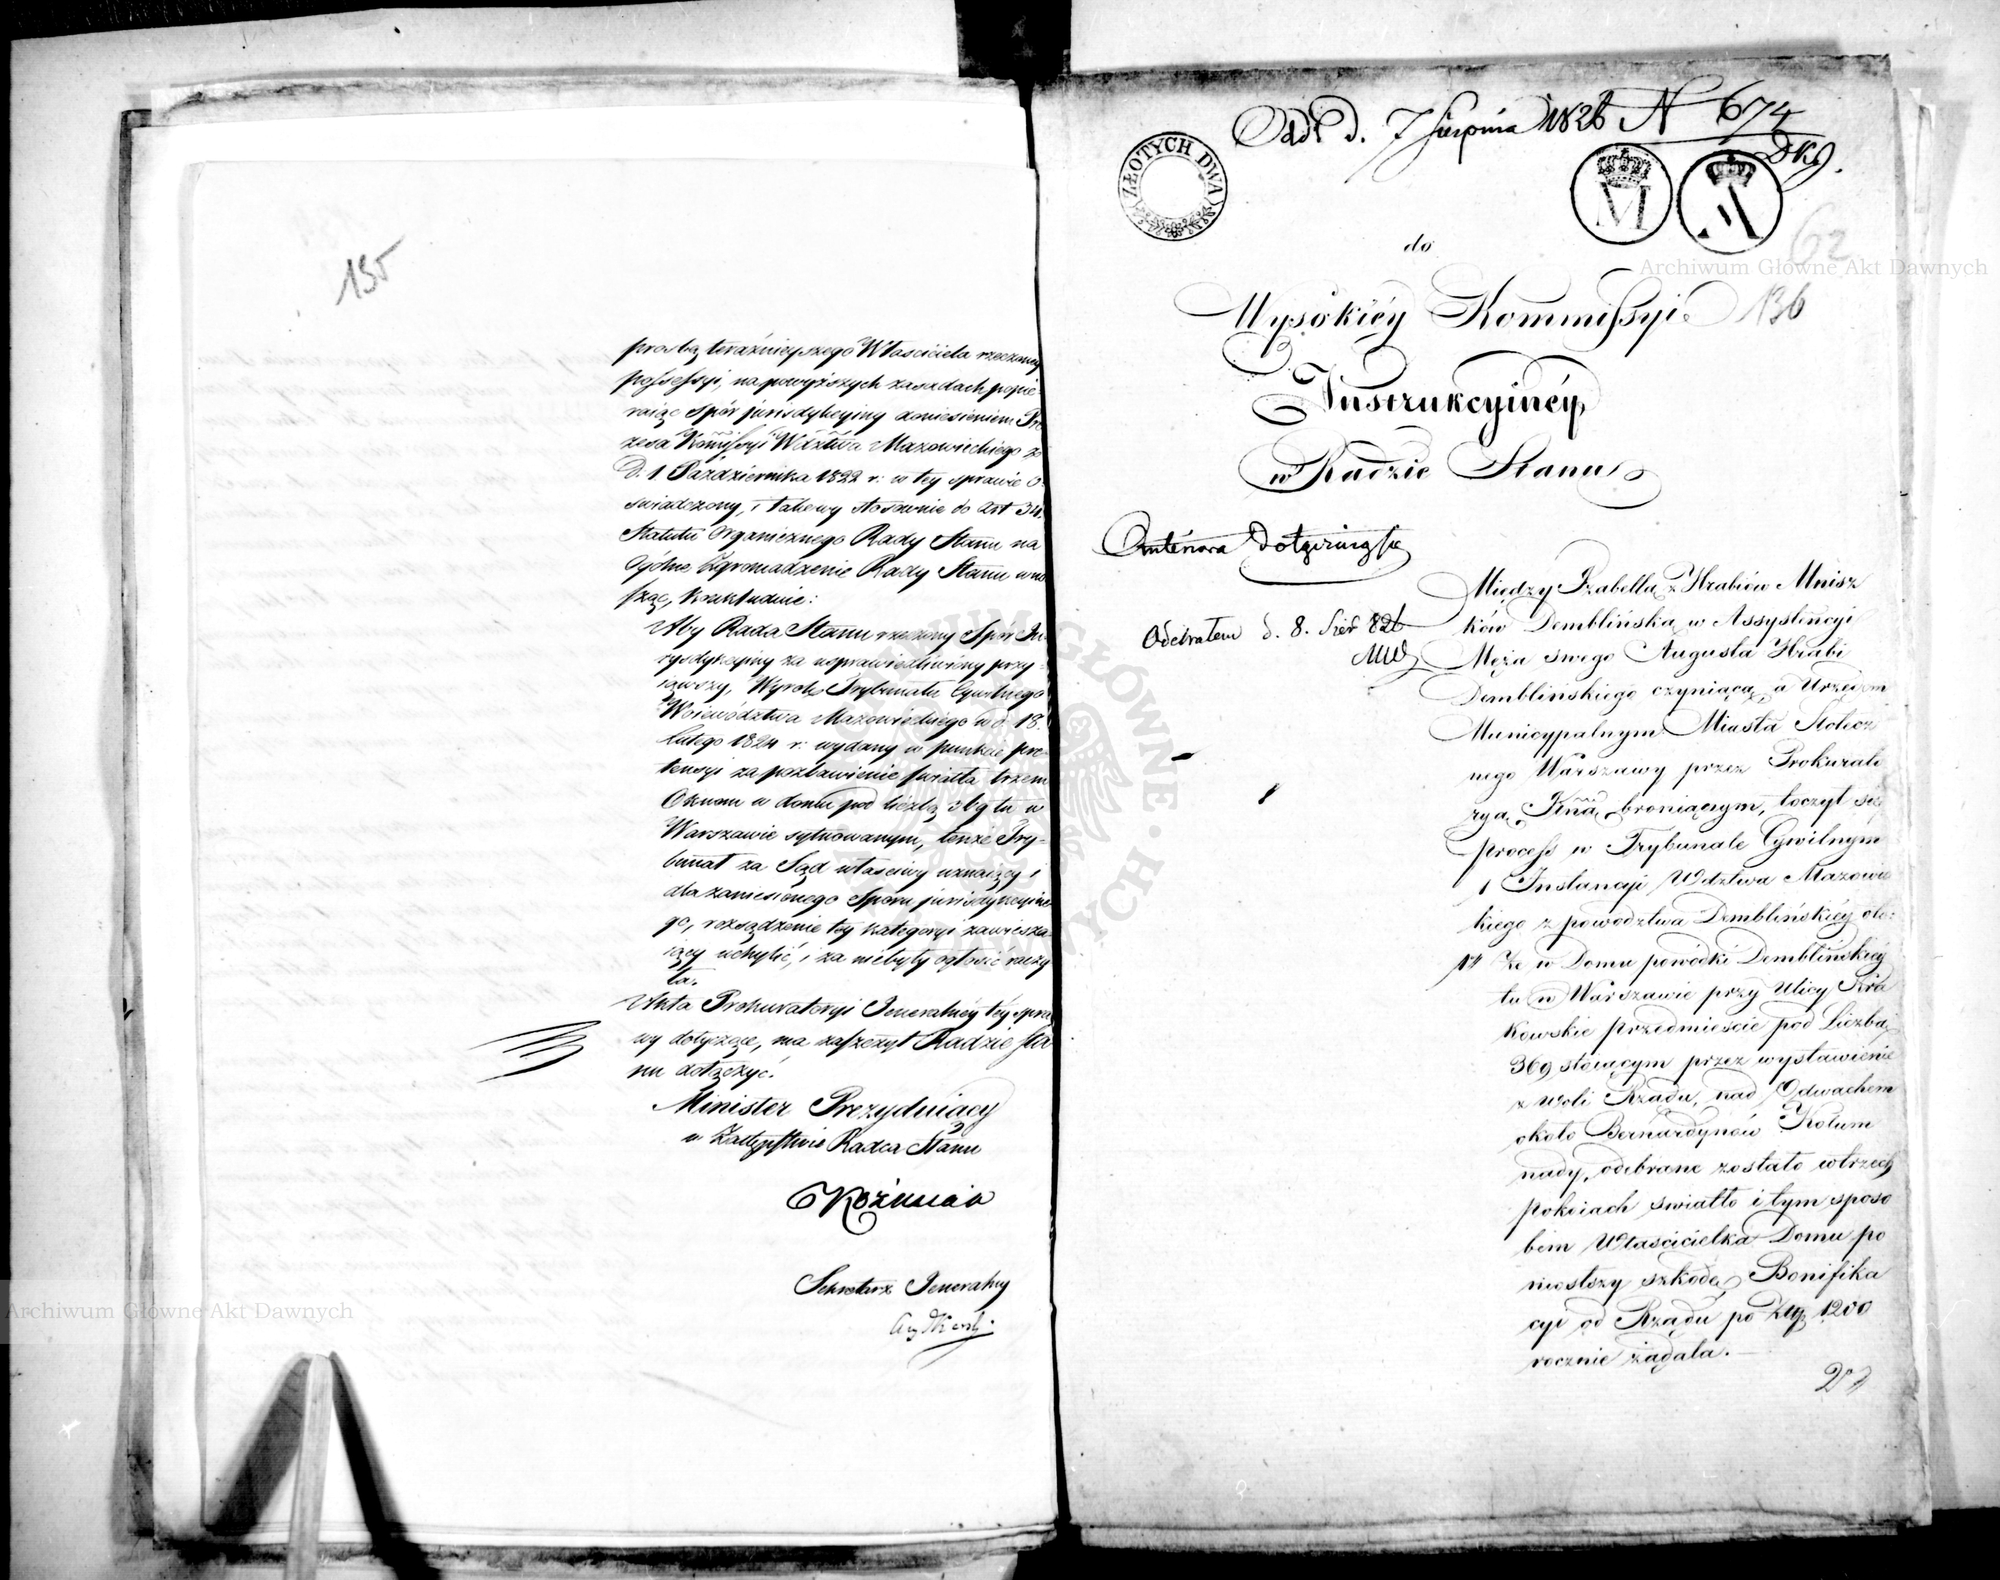 135
prosbą teraźnieyszego Właściciela rzeczoney
possessyi, na powyższych zasadach popie-
raiąc Spór jurisdykcyiny doniesieniem Pre
zesa Kommissyi Wdztwa Mazowieckiego z
D. 1 Października 1822 r: w tey sprawie o-
swiadczony, i takowy stosownie do Art 34.
Statutu Organicznego Rady Stanu na
Ogólne Zgromadzenie Rady Stanu wno
sząc, konkluduie:
Aby Rada Stanu rzeczony Spór Ju-
rysdykcyiny za usprawiedliwiony przy-
iąwszy, Wyrok Trybunału Cywilnego
Woiewództwa Mazowieckiego w d. 18.
Lutego 1824 r: wydany w punkcie pre-
tensyi za pozbawienie światła trzem
Oknom w domu pod liczbą 369 tu w
Warszawie sytuowanym, tenże Try-
bunał za Sąd właściwy uznaiący i
dla zaniesionego Sporu jurisdykcyine
go, rozsądzenie tey kategoryi zawiesza-
iący uchylić, i za niebyły ogłosić raczy
ła.
Akta Prokuratoryi Jeneralney tey spra
wy dotyczące, ma zaszczyt Radzie Sta
nu dołączyć.
Minister Prezyduiący
w Zastępstwie Radca Stanu
Koźmian
Sekretarz Jeneralny
Odd. d. 7 Sierpnia 1826 N 674
DKJ.
ZŁOTYCH DWA
M
A
62
do
136
Wysokiéy Kommissyi
Instrukcyinéy
w Radzie Stanu
Anteriora dołączaią się
Odebrałem d. 8. Sier 826
Między Izabellą z Hrabiów Mnisz
ków Demblińską w Assystencyi
Męża swego Augusta Hrabi
Demblińskiego czyniącą, a Urzędem
Municypalnym Miasta Stołecz
nego Warszawy przez Prokurato
rya Kńą broniącym, toczył się
process w Trybunale Cywilnym
1 Instancyi Wdztwa Mazowie
ckiego z powodztwa Demblińskiéy oto:
1° Że w Domu powódki Demblińskiéy
tu w Warszawie przy Ulicy Kra
kowskie przedmieście pod Liczbą
369 stoiącym przez wystawienie
z woli Rządu, nad Odwachem
około Bernardynów Kolum
nady, odebrane zostało w trzech
pokoiach światło i tym sposo
bem Właścicielka Domu po
niosłszy szkodę, Bonifika
cyi od Rządu po Złp 1200
rocznie żądała.
2°
Archiwum Główne Akt Dawnych
Archiwum Główne Akt Dawnych